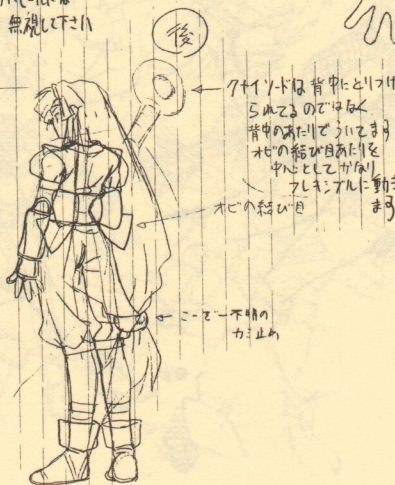 無視して下さい
後
クナイソードは背中にとりつけ
られてるのではなく
背中のあたりでういてます
オビの結び目あたりを
中心としてかなり
フレキシブルに動き
ます
オビの結び目
不明の
カミ止め